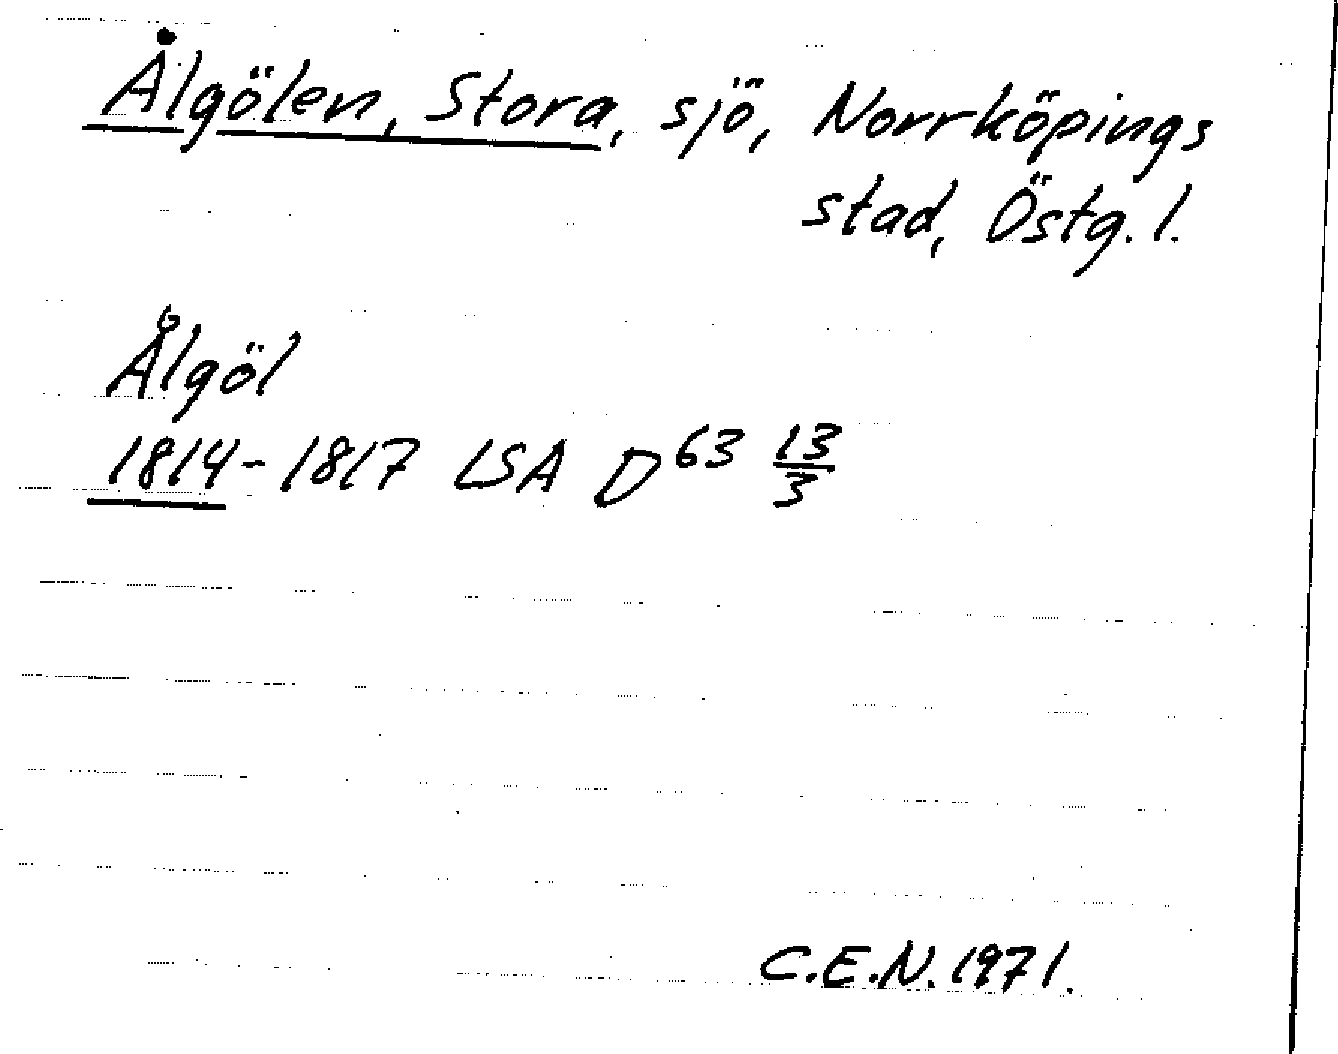 Ålgölen, Stora, sjö, Norrköpings
stad, Östg. l.
Ålgöl
1814-1817 LSA D 63 13/3
C.E.N. 1971.